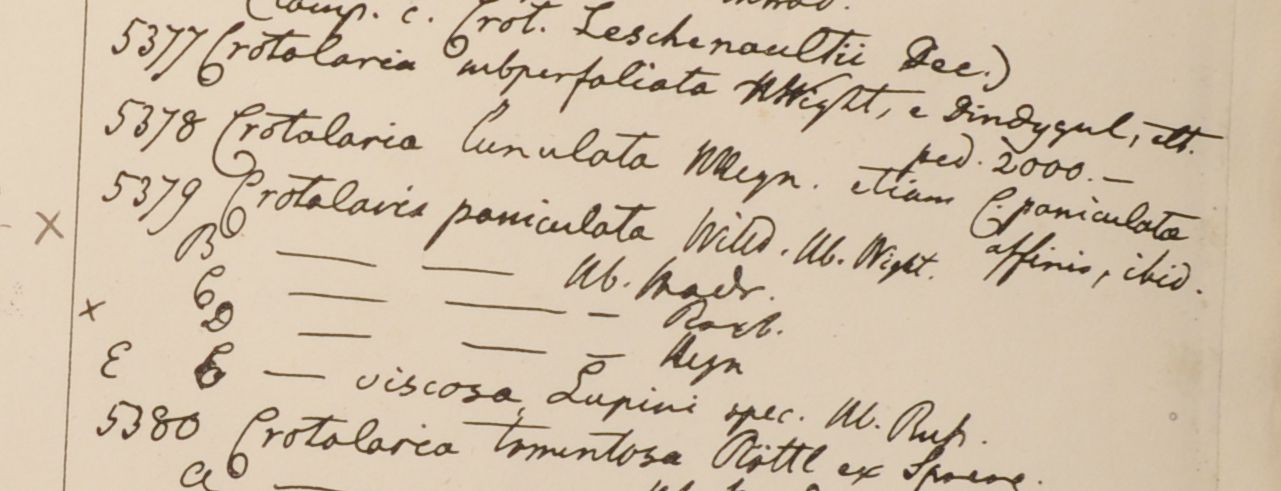 (Comp. c. Crot. Leschenaultii Dec.)
5377 Crotalaria subperfoliata Wight, e Dindygul, alt. ped. 2000.—
5378 Crotalaria lunulata Heyn. etiam C. paniculata affinis, ibid.
5379 Crotalaria paniculata Willd. Hb. Wight.
B — — Hb. Madr.
C — — — Roxb.
D — — — Heyn
E — viscosa, Lupini spec. Hb. Russ.
5380 Crotalaria tomentosa Röttl ex Spreng.
a —